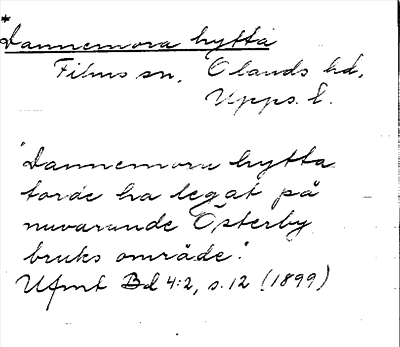 *
Dannemora hytta
Films sn. Olands hd.
Upps. l.
"Dannemora hytta
torde ha legat på
nuvarande Österby
bruks område".
Ufmt Bd 4:2, s. 12 (1899)